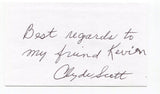 Best regards to
my friend Kevin
Clyde Scott